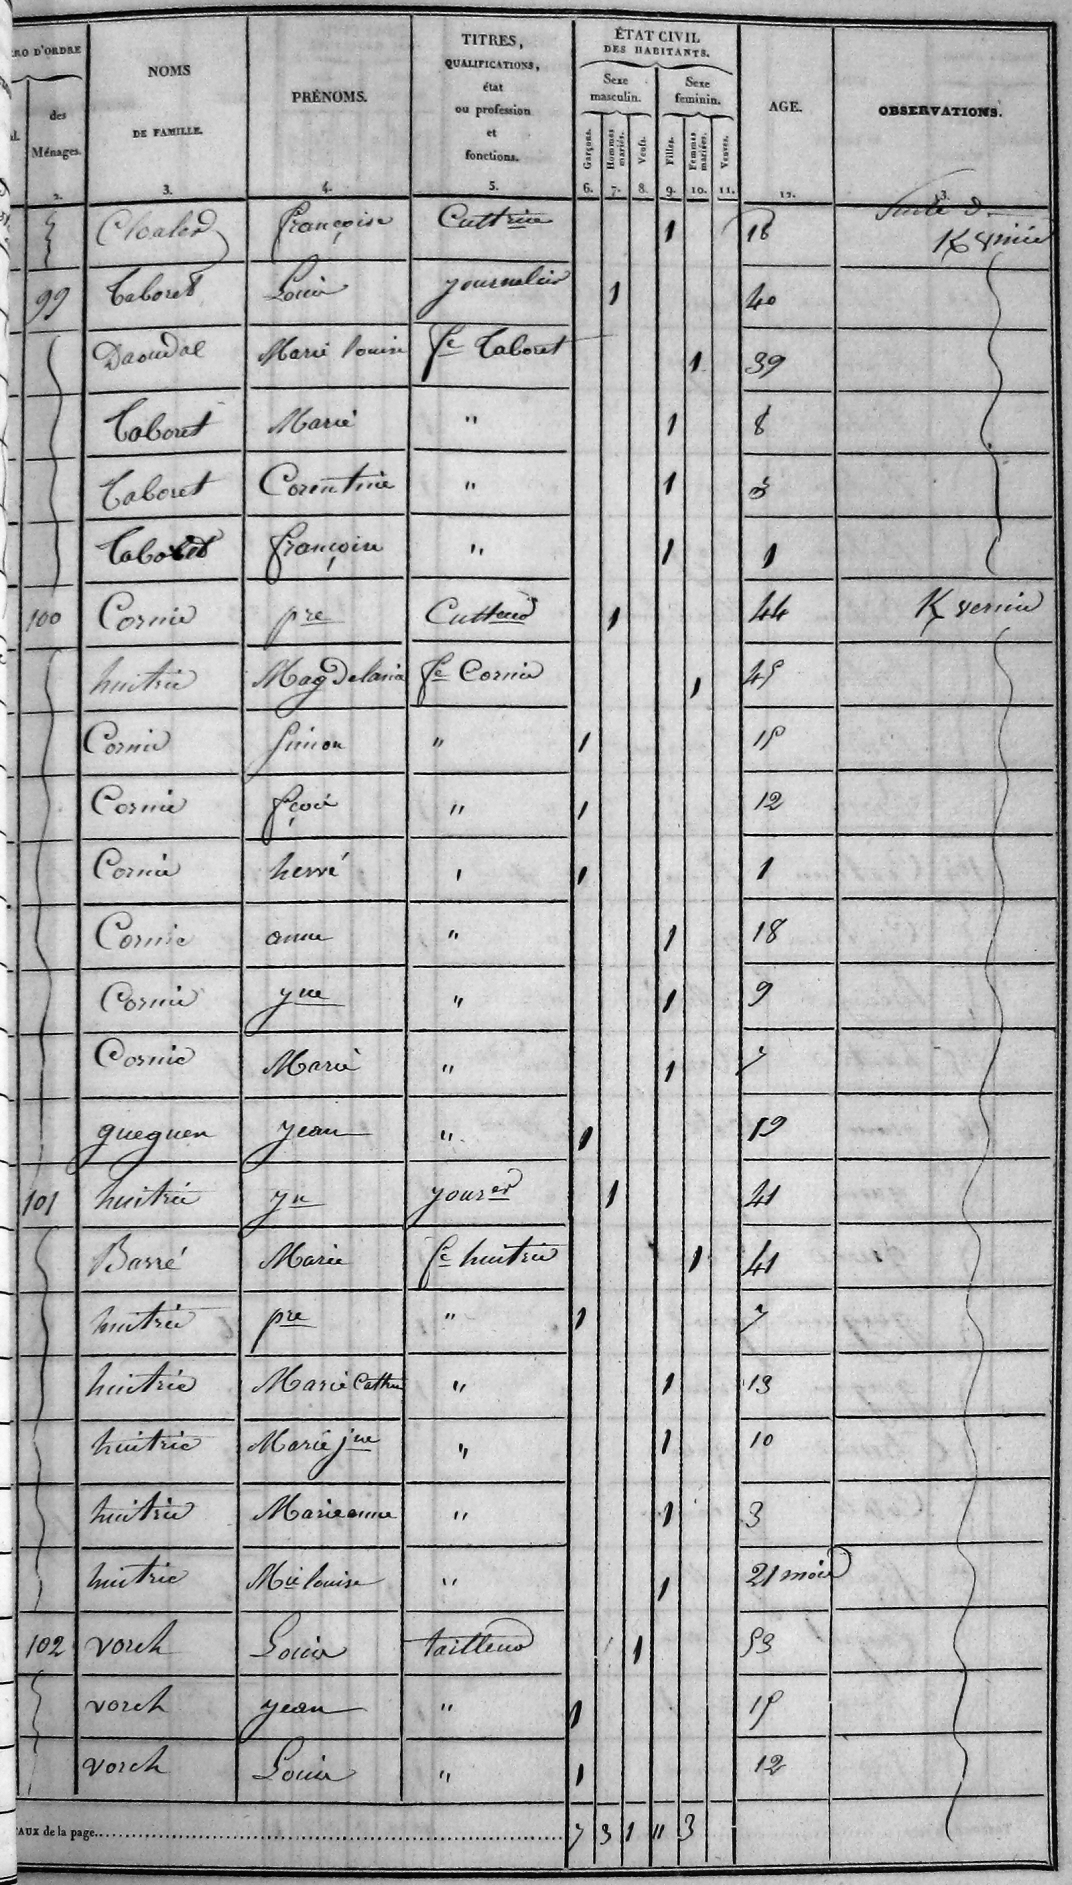 RO D'ORDRE
des
Ménages.
2.
NOMS
DE FAMILLE.
3.
PRÉNOMS.
4.
TITRES,
QUALIFICATIONS,
état
ou profession
et
fonctions.
5.
ÉTAT CIVIL
DES HABITANTS.
Sexe
masculin.
Sexe
feminin.
Garçons.
Hommes mariés.
Veufs.
Filles.
Femmes mariées.
Veuves.
6. 7. 8. 9. 10. 11.
AGE.
12.
OBSERVATIONS.
13.
françoise Cultrice 1 18 Suite d
K vernic
99 Taboret Louis journalier 1 40
Daoudal Marie louise fe Taboret 1 39
Taboret Marie " 1 8
Taboret Corentine " 1 3
Taboret françoise " 1 1
100 Cornic pre Cutteur 1 44 K vernic
huitric Magdelaine fe Cornic 1 45
Cornic Simon " 1 15
Cornic fçois " 1 12
Cornic hervé " 1 1
Cornic anne " 1 18
Cornic yne " 1 9
Cornic Marie " 1 7
gueguen yean " 1 19
101 huitric yn youres 1 41
Barré Marie fe huitric 1 41
huitric pre " 1 7
huitric Marie Cathe " 1 13
huitric Marie jne " 1 10
huitric Marie anne " 1 3
huitric Mie louise " 1 21 mois
102 vorch Louis tailleur 1 53
vorch yean " 1 15
vorch Louis " 1 12
AUX de la page 7 3 1 11 3